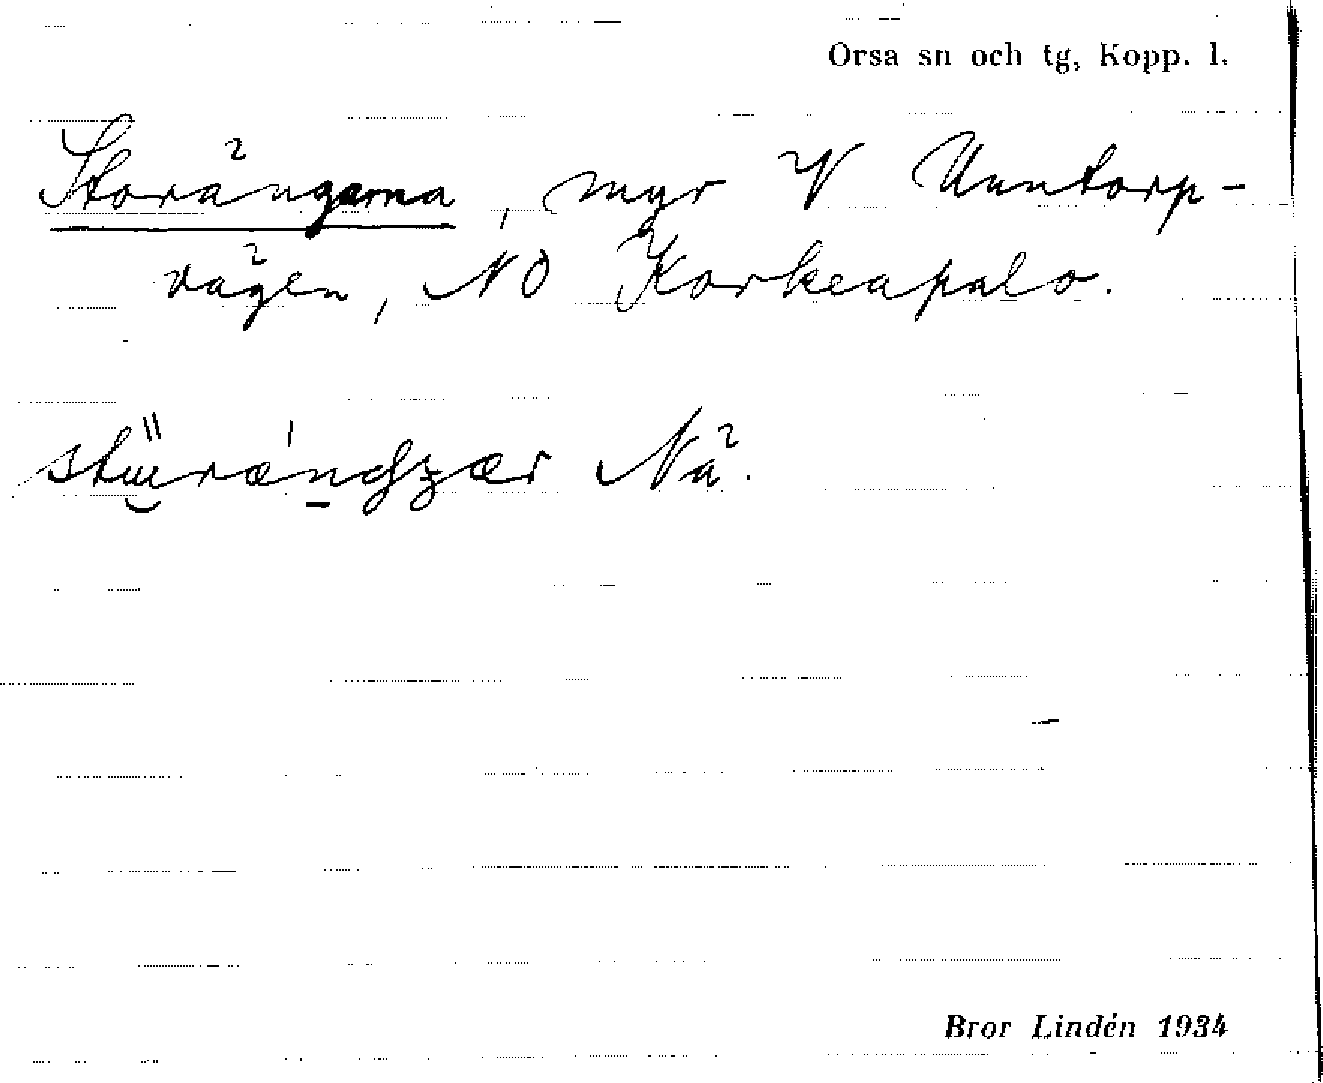 Orsa sn och tg, Kopp. l.
Storängarna, myr V Unntorp-
vägen, NO Korkeapalo.
Nä.
Bror Lindén 1934